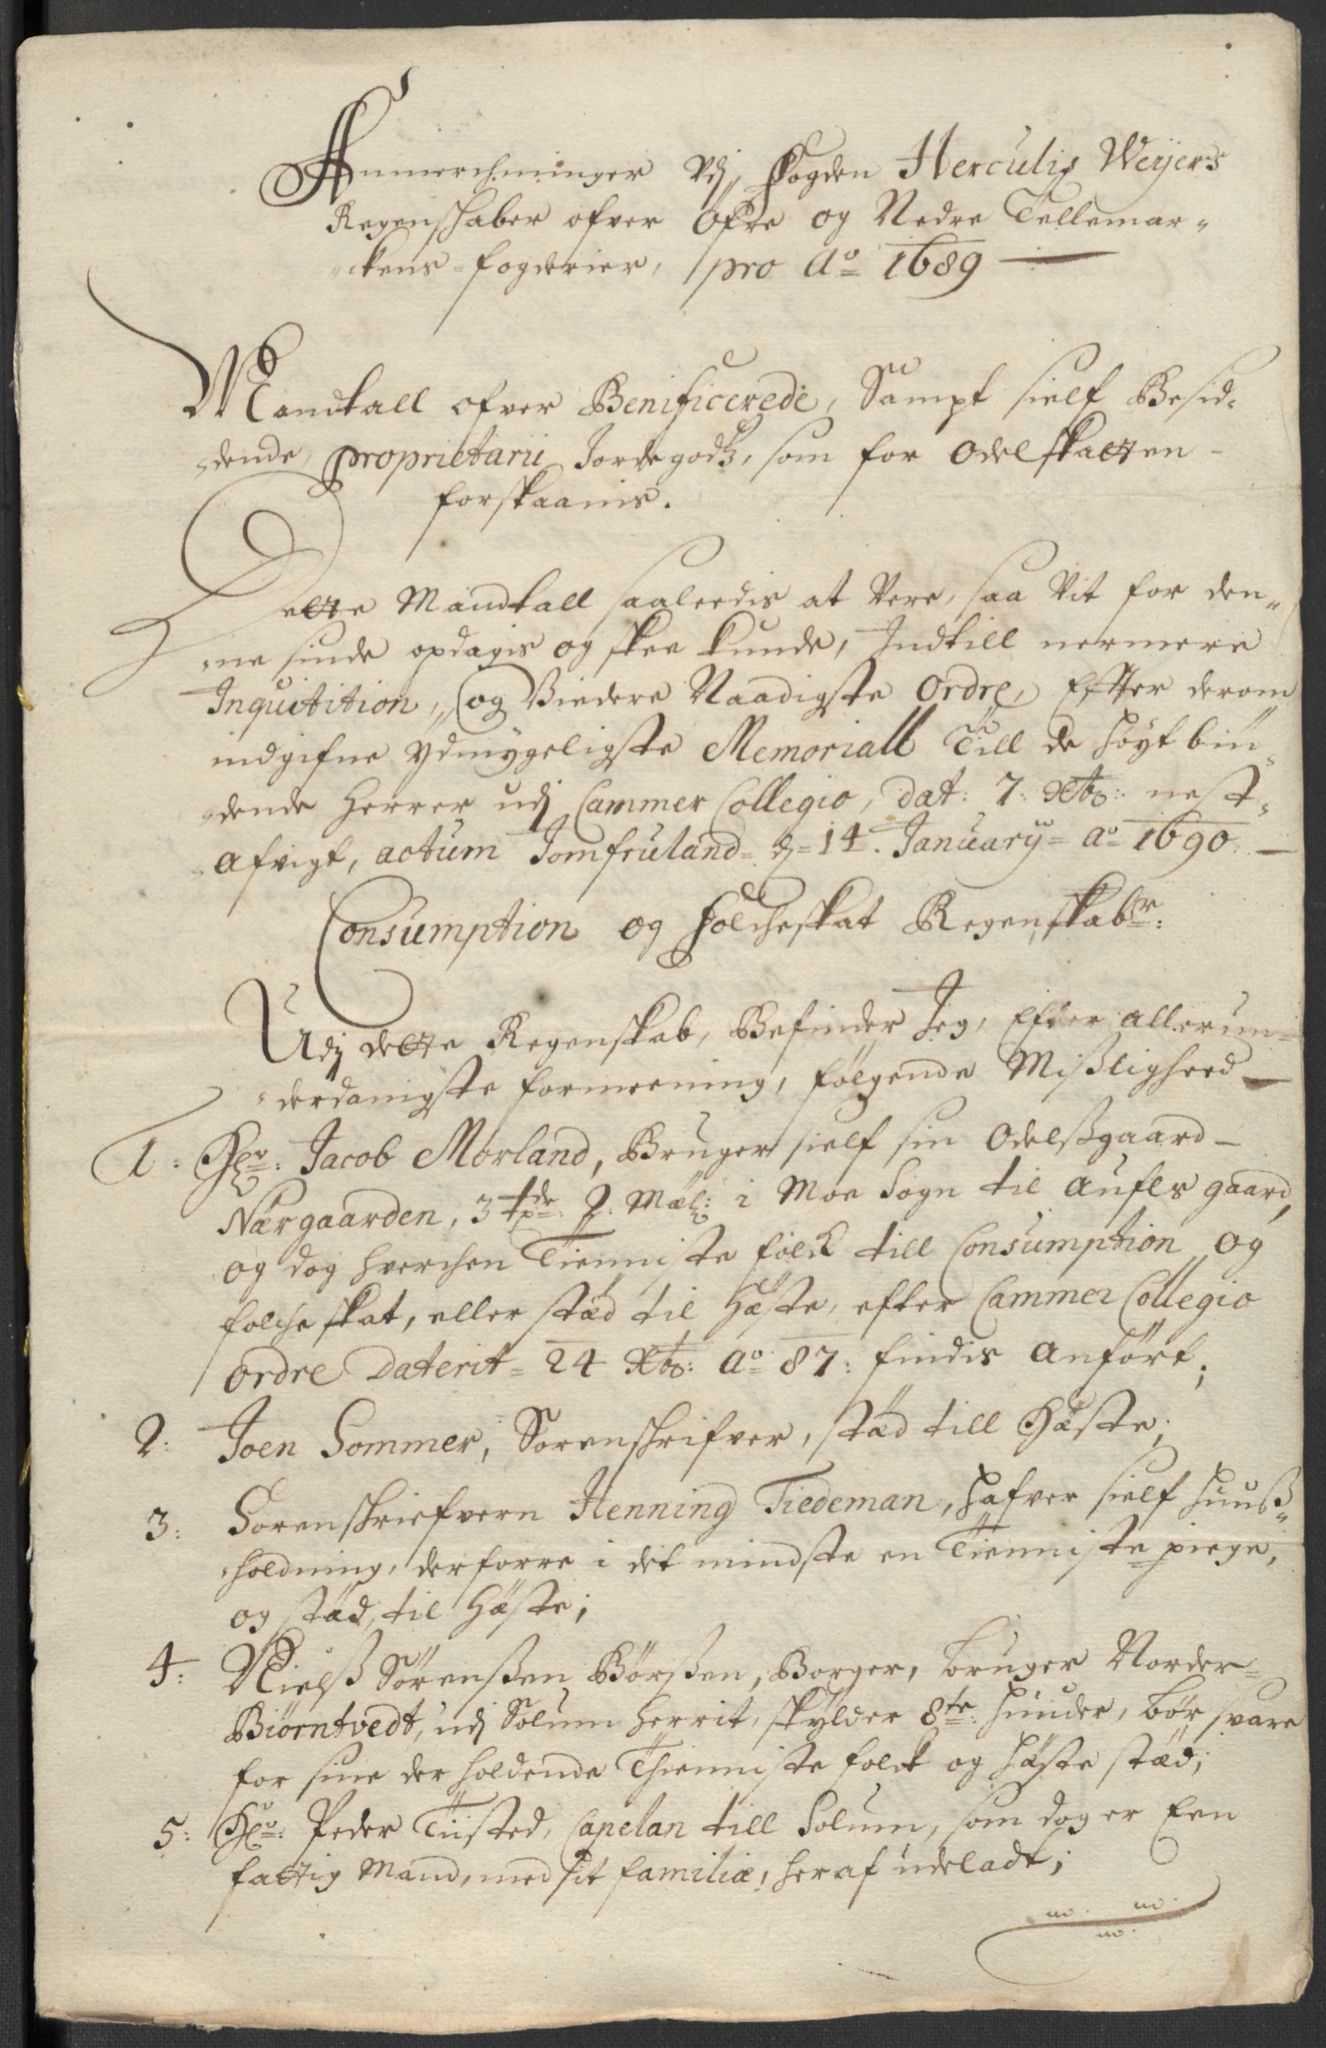 Anmerchninger Udj Fogden Herculis Weyers
Regenskaber ofver Öfre og Nedre Tellemar-
kens fogderier, pro Ao 1689
Mandtall ofver Benificerede, Sampt sielf Besid-
dende, proprietarii Jordegodtz, som for Odelskatten
forskaanis.
Dette Mandtall saaleedis at Vere, saa Vit for den-
ne sinde opdagis og skee kunde, Indtill nermere
Inquitition, og Viedere Naadigste Ordre, Efter derom
indgifne Ydmygeligste Memoriall Till de höyt bün-
dende Herrer udj Cammer Collegio, dat: 7: Xb: nest-
afvigt, actum Jomfruland d: 14. January Ao 1690.
Consumption og Folcheskat Regenskaber:
Udj dette Regenskab, Befinder Jeg, Efter allerun-
derdanigste formeening, følgende Mißligheed
1: Hr: Jacob Morland, Bruger sielf sin Odelßgaard
Nærgaarden, 3 tde 2: Mæl: i Moe Sogn til Aufls gaard,
og dog hverchen Tienniste folck till Consumption og
folche skat, eller stæd til Hæste, efter Cammer Collegio
Ordre Daterit 24 Xb: Ao 87: findis Anført;
2: Joen Sommer, Sorenskrifver, stæd till Hæste;
3: Sorenskriefvern Henning Tiedeman, hafver sielf huuß-
holdning, derforre i det mindste en Tienniste piege,
og stæd, til Hæste;
4: Nielß Sörenßen Börßen, Borger, bruger Norder-
Biörntvedt, udj Solum Herrit, skylder 8te: huuder, bør svare
for sine der holdende Thienniste folck og hæste stæd;
5: Hr: Peder Tiisted, Capelan till Solum, som dog er Een
fattig Mand, med sit familiæ, heraf udeladt;